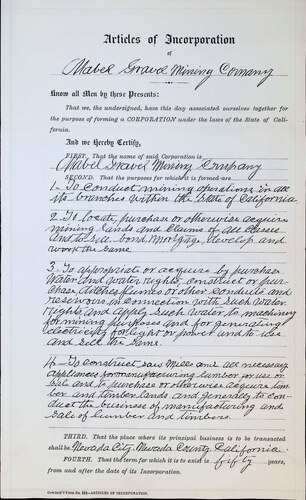 Articles of Incorporation
of
Mabel Gravel Mining Comany
Know all Men by these Presents:
That we, the undersigned, have this day associated ourselves together for
the purpose of forming a CORPORATION under the laws of the State of Cal-
ifornia.
And we Hereby Certify,
FIRST. That the name of said Corporation is
Mabel Gravel Mining Company
SECOND. That the purposes for which it is formed are
1. To Conduct mining operations in all
its branches within the State of California.
2. To locate, purchase or otherwise acquire
mining lands and Claims of all classes
and to sell, bond, Mortgage, develop and
work the same
3. To appropriate or acquire by purchase
Water and water rights, construct or pur-
chase, ditches, flumes or other Conduits and
reservoirs in connection with such Water
rights and apply such water to machinery
for mining purposes and for generating
electricity for light or power and to use
and sell the same.
4. To construct saw Mills and all necessary
appliances for manufacturing lumber for use or
sale and to purchase or otherwise acquire tim-
ber and timber lands and generally to con-
duct the business of manufacturing and
sale of lumber and timbers.
THIRD. That the place where its principal business is to be transacted
shall be Nevada City, Nevada County California.
FOURTH. That the term for which it is to exist is fifty years,
from and after the date of its Incorporation.
ARTICLES OF INCORPORATION.